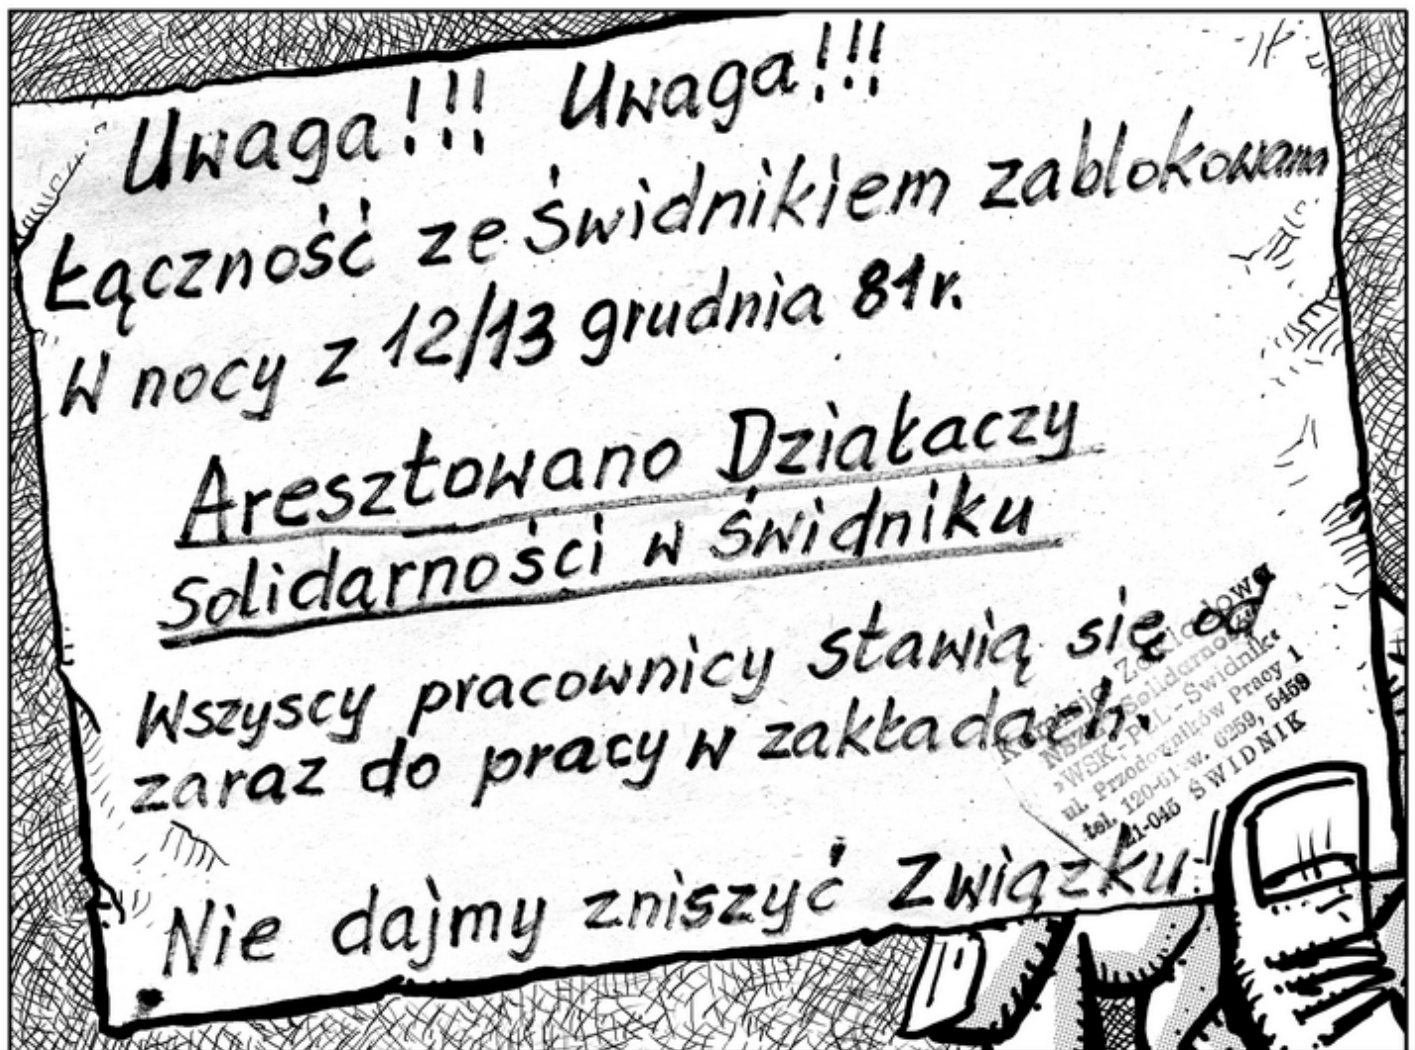 Uwaga!!! Uwaga!!!
Łączność ze Świdnikiem zablokowana
W nocy z 12/13 grudnia 81r.
Aresztowano Działaczy
Solidarności w Świdniku
Wszyscy pracownicy stawią się od
zaraz do pracy w zakładach.
Nie dajmy zniszyć Związku
Komisja Zakładowa
NSZZ "Solidarność"
»WSK-PZL-Świdnik«
ul. Przodowników Pracy 1
tel. 120-61 w. 6259, 5459
21-045 ŚWIDNIK